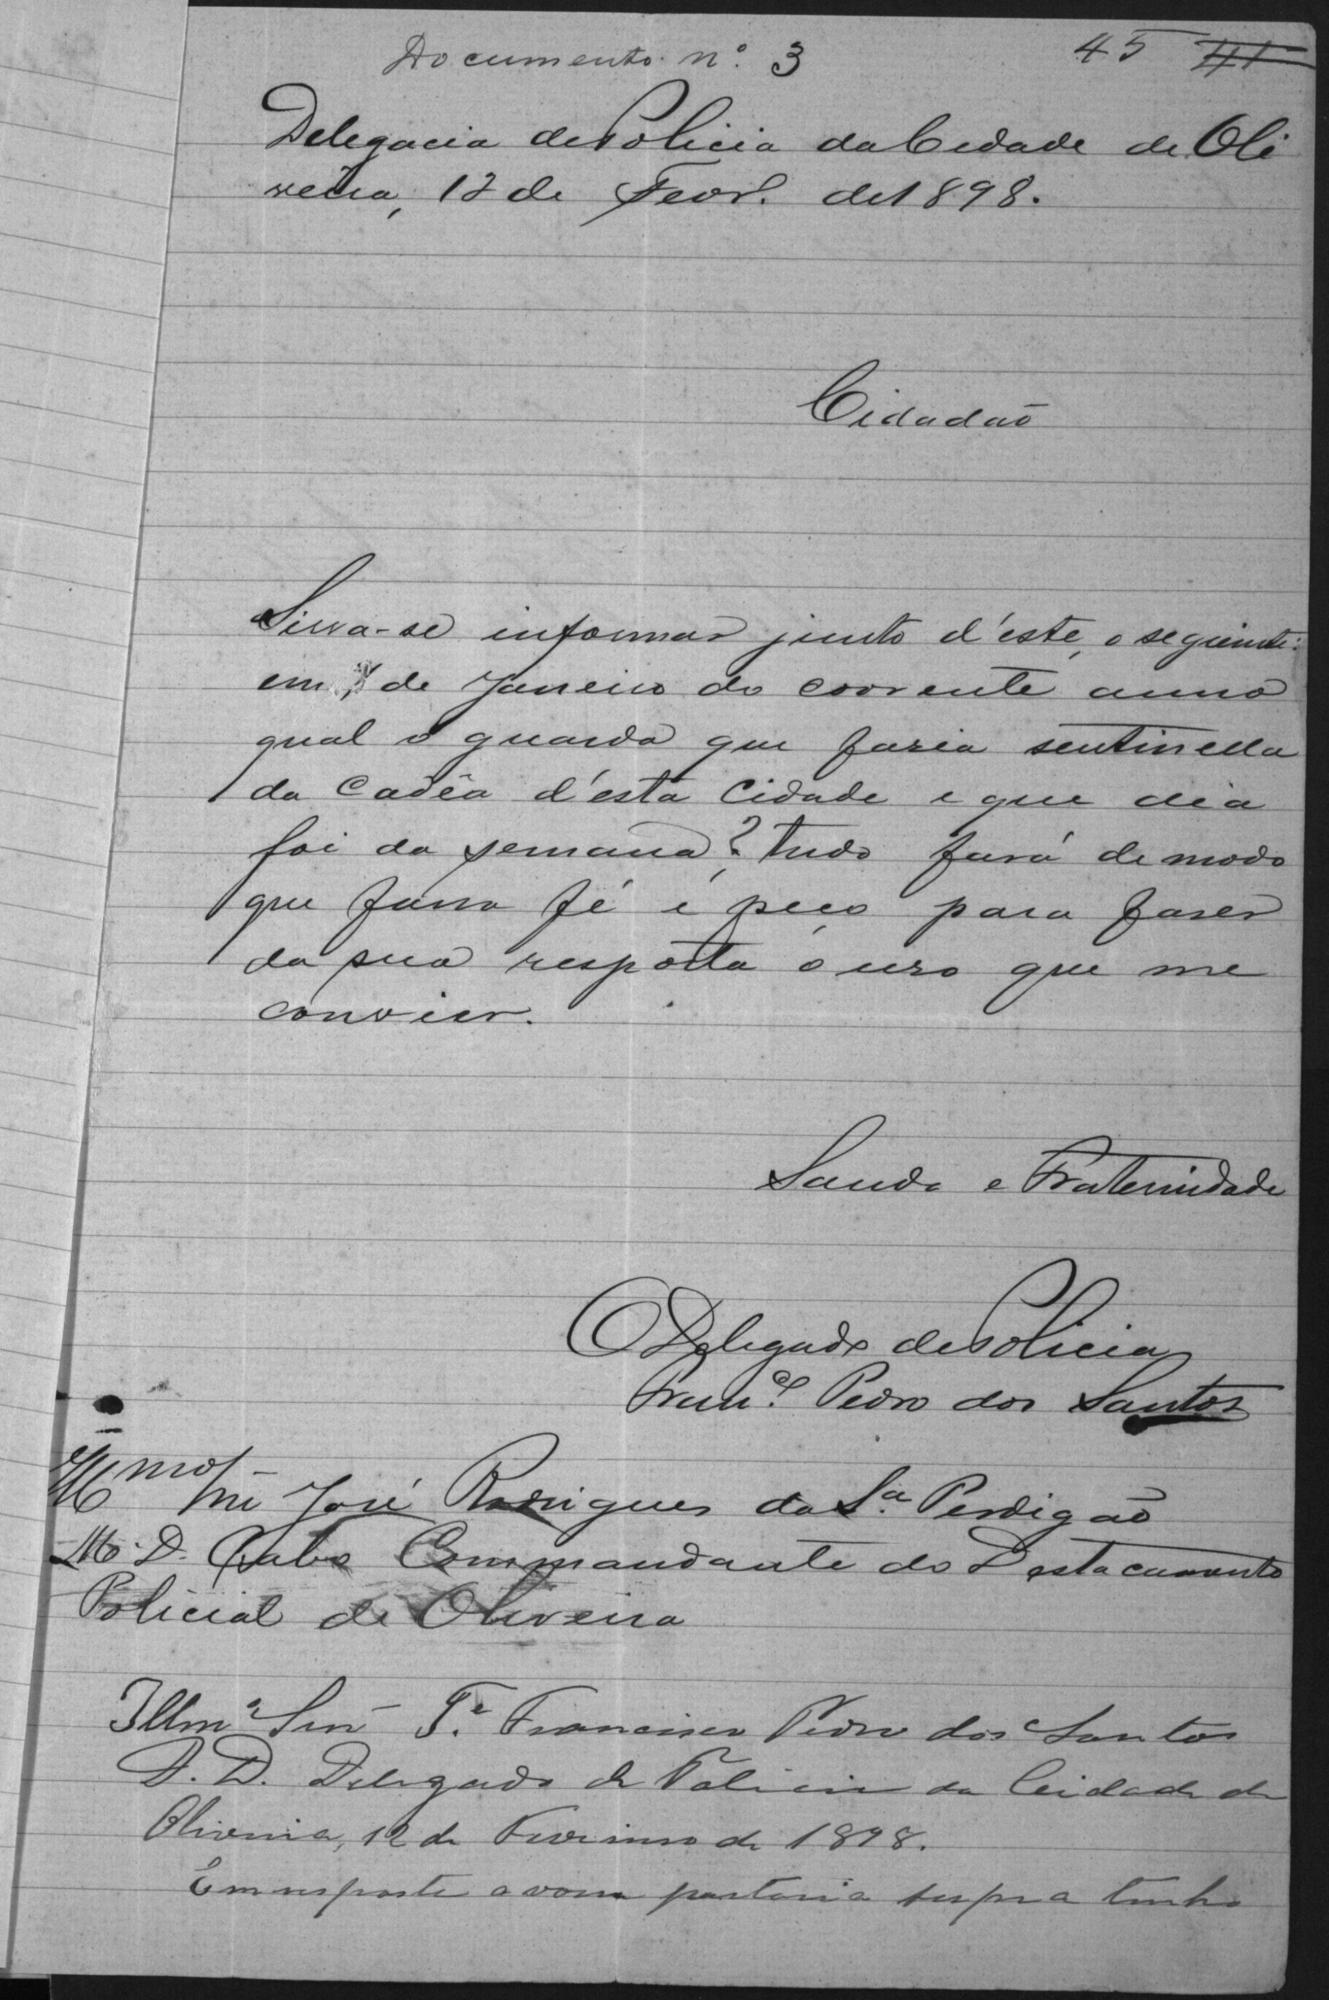 Documento nº 3 45 41
Delegacia de Policia da Cidade de Oli
veira, 12 de Fevr. de 1898.
Cidadaõ
Sirva-se informar junto d'este, o seguinte:
em de Janeiro do corrente anno
qual o guarda que fazia sentinella
da Cadêa d'esta Cidade e que dia
foi da semana? Tudo fará de modo
que faça fé e peço para fazer
da sua resposta o uso que me
convier.
Saude e Fraternidade
O Delegado de Policia
Franco. Pedro dos Santos
Snr José Rodrigues da Sa. Perdigaõ
M. D. Cabo Commandante do Destacamento
Policial de Oliveira
Illmo Snr Te. Francisco Pedro dos Santos
D. D. Delegado de Policia da Ceidade de
Oliveira, 12 de Fevereiro de 1898.
Em resposta a vossa portaria supra tenho